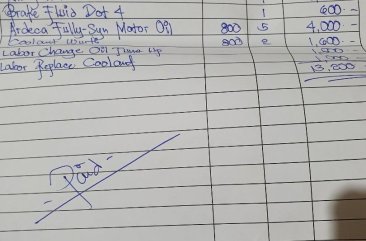 Brake Fluid Dot 4 1 600 -
Ardeca Fully-Syn Motor Oil 800 5 4,000 -
Coolant 800 2 1,600 -
Labor Change Oil Tune Up
Labor Replace Coolant
13,200
Paid